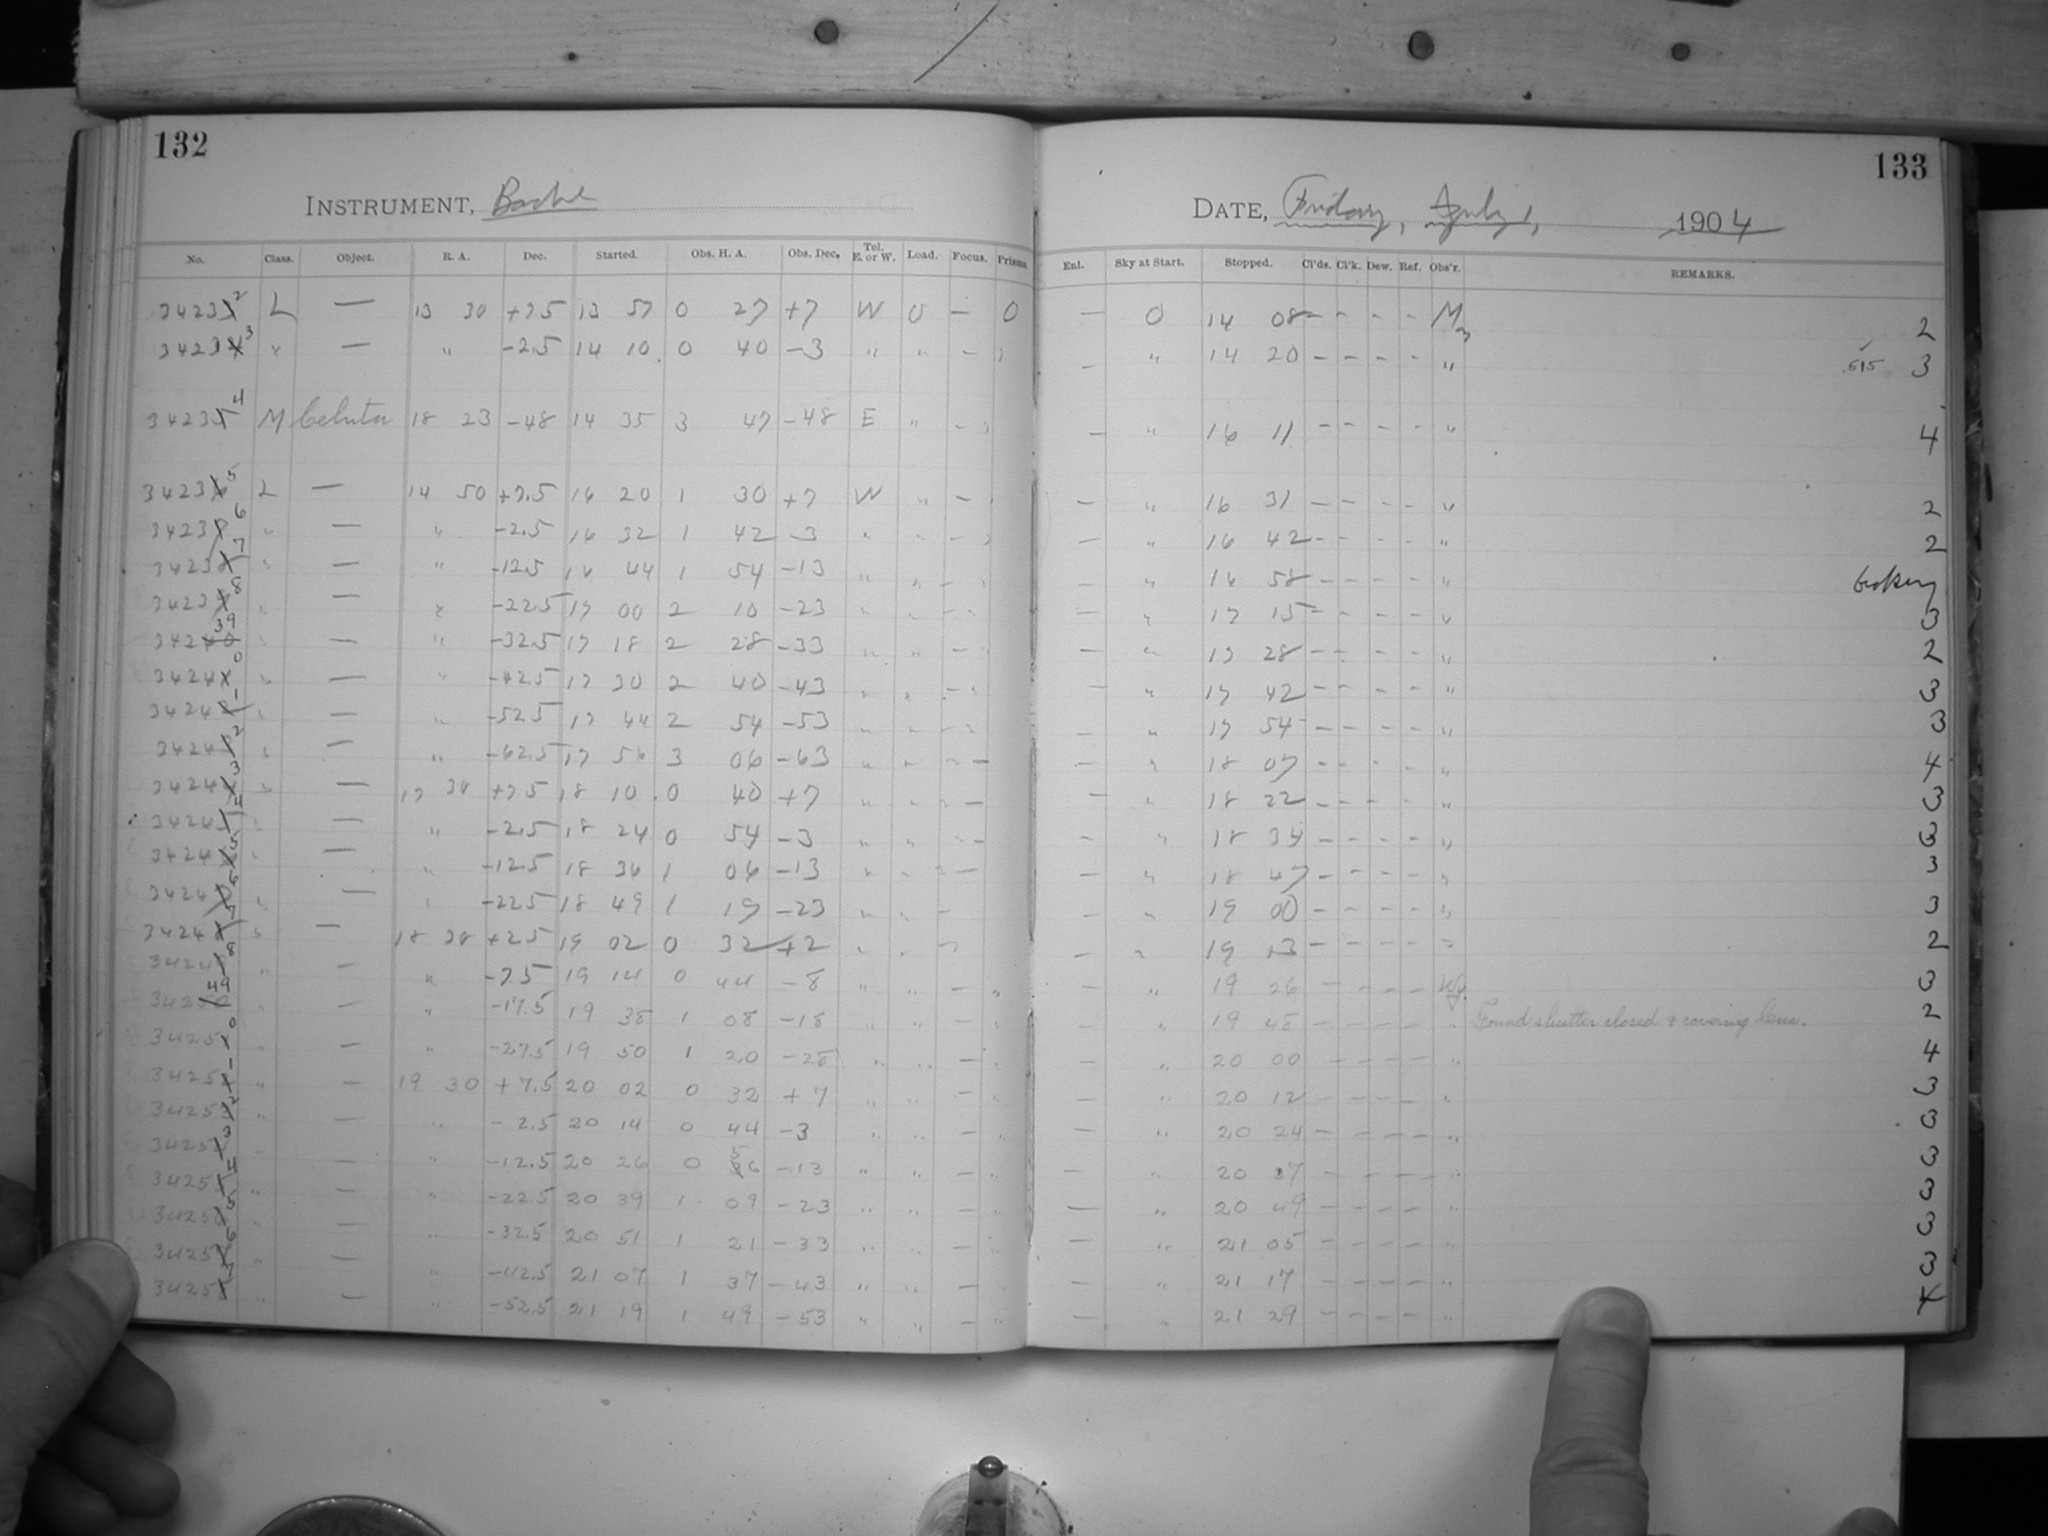 132
INSTRUMENT, Bache
No. Class. Object. R. A. Dec. Started. Obs. H. A. Obs. Dec. Tel. E. or W. Load. Focus. Prisms.
34232 L — 13 30 +7.5 13 57 0 27 +7 W 0 — 0
34233 " — " -2.5 14 10 0 40 -3 " " -
34234 M 18 23 -48 14 35 3 47 -48 E " -
34235 L — 14 50 +7.5 16 20 1 30 +7 W " -
34236 " — " -2.5 16 32 1 42 -3 " " -
34237 " — " -12.5 16 44 1 54 -13 " " -
34238 " — " -22.5 17 00 2 10 -23 " " -
34239 " — " -32.5 17 18 2 28 -33 " " -
34240 " — " -42.5 17 30 2 40 -43 " " -
34241 " — " -52.5 17 44 2 54 -53 " " -
34242 " — " -62.5 17 56 3 06 -63 " " - -
34243 " — 17 30 +7.5 18 10 0 40 +7 " " - -
34244 " — " -2.5 18 24 0 54 -3 " " - -
34245 " — " -12.5 18 36 1 06 -13 " " - -
34246 " — " -22.5 18 49 1 19 -23 " " -
34247 " — 18 30 +2.5 19 02 0 32 +2 " " -
34248 " — " -7.5 19 14 0 44 -8 " " - "
34249 " — " -17.5 19 38 1 08 -18 " " - "
34250 " — " -27.5 19 50 1 20 -28 " " - "
34251 " — 19 30 +7.5 20 02 0 32 +7 " " - "
34252 " — " -2.5 20 14 0 44 -3 " " - "
34253 " — " -12.5 20 26 0 56 -13 " " - "
34254 " — " -22.5 20 39 1 09 -23 " " - "
34255 " — " -32.5 20 51 1 21 -33 " " - "
34256 " — " -42.5 21 07 1 37 -43 " " - "
34257 " — " -52.5 21 19 1 49 -53 " " - "
133
DATE, Friday, July 1, 1904
Ent. Sky at Start. Stopped. Cl'ds. Cl'k. Dew. Ref. Obs'r. REMARKS.
— 0 14 08 - - - - 2
— " 14 20 - - - - " .515 3
— " 16 11 - - - - " 4
— " 16 31 - - - - " 2
— " 16 42 - - - - " 2
— " 16 58 - - - - " broken
— " 17 15 - - - - " 3
— " 17 28 - - - - " 2
— " 17 42 - - - - " 3
— " 17 54 - - - - " 3
— " 18 07 - - - - " 4
— " 18 22 - - - - " 3
— " 18 34 - - - - " 3
— " 18 47 - - - - " 3
— " 19 00 - - - - " 3
— " 19 13 - - - - " 2
— " 19 26 - - - - 3
" 19 48 - - - - " Found shutter closed & covering lens. 2
— " 20 00 - - - - " 4
— " 20 12 - - - - " 3
— " 20 24 - - - - " 3
— " 20 37 - - - - " 3
— " 20 49 - - - - " 3
— " 21 05 - - - - " 3
— " 21 17 - - - - " 3
— " 21 29 - - - - " 4